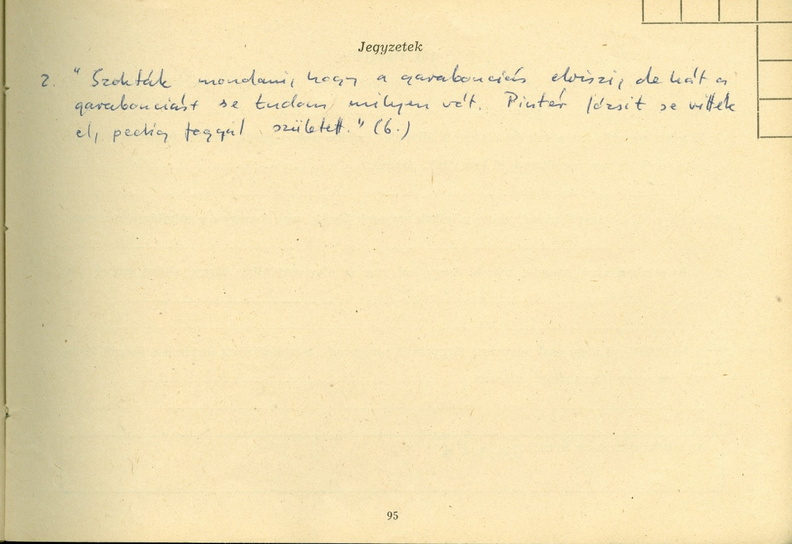 Jegyzetek
2. "Szokták mondani, hogy a garabonciás elviszi, de hát a
garabonciást se tudom milyen vót. Pintér Józsit se vitték
el, pedig foggal született." (6.)
95